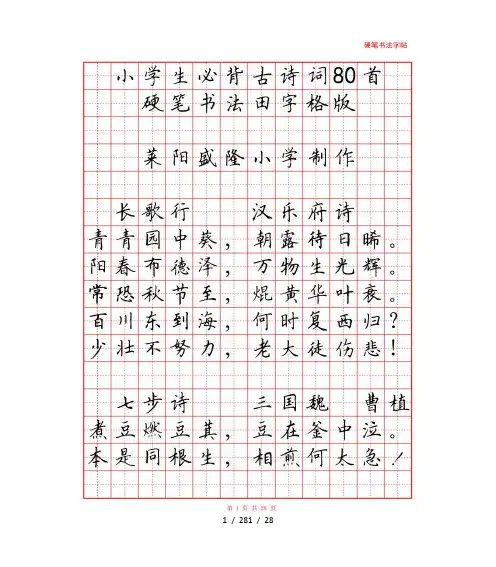 硬笔书法字帖
小学生必背古诗词80首
硬笔书法田字格版
莱阳盛隆小学制作
长歌行 汉乐府诗
青青园中葵，朝露待日晞。
阳春布德泽，万物生光辉。
常恐秋节至，焜黄华叶衰。
百川东到海，何时复西归？
少壮不努力，老大徒伤悲！
七步诗 三国魏 曹植
煮豆燃豆萁，豆在釜中泣。
本是同根生，相煎何太急！
第 1 页 共 28 页
1 / 281 / 28